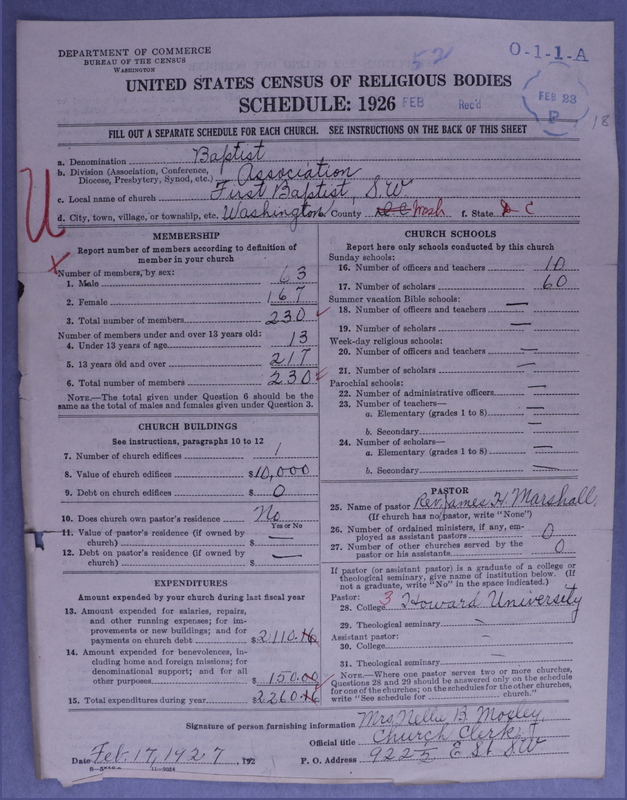 DEPARTMENT OF COMMERCE
BUREAU OF THE CENSUS
WASHINGTON
52
O-1-1-A
UNITED STATES CENSUS OF RELIGIOUS BODIES
SCHEDULE: 1926
FEB Rec'd
FEB 23
P.
18
FILL OUT A SEPARATE SCHEDULE FOR EACH CHURCH. SEE INSTRUCTIONS ON THE BACK OF THIS SHEET
a. Denomination Baptist
b. Division (Association, Conference, Diocese, Presbytery, Synod, etc.) Association
c. Local name of church First Baptist, SW
d. City, town, village, or township, etc. Washington e. County D.C. Wash f. State D C
U
MEMBERSHIP
Report number of members according to definition of
member in your church
X
Number of members, by sex:
1. Male 63
2. Female 167
3. Total number of members 230
Number of members under and over 13 years old:
4. Under 13 years of age 13
5. 13 years old and over 217
6. Total number of members 230
NOTE.—The total given under Question 6 should be
same as the total of males and females given under Question 3.
CHURCH BUILDINGS
See instructions, paragraphs 10 to 12
7. Number of church edifices 1
8. Value of church edifices $10,000
9. Debt on church edifices $ 0
10. Does church own pastor's residence No
Yes or No
11. Value of pastor's residence (if owned by
church) $ —
12. Debt on pastor's residence (if owned by
church) $ —
EXPENDITURES
Amount expended by your church during last fiscal year
13. Amount expended for salaries, repairs,
and other running expenses; for im-
provements or new buildings; and for
payments on church debt $2110.16
14. Amount expended for benevolences, in-
cluding home and foreign missions; for
denominational support; and for all
other purposes $150.00
15. Total expenditures during year $2260.16
CHURCH SCHOOLS
Report here only schools conducted by this church
Sunday schools:
16. Number of officers and teachers 10
17. Number of scholars 60
Summer vacation Bible schools:
18. Number of officers and teachers —
19. Number of scholars —
Week-day religious schools:
20. Number of officers and teachers —
21. Number of scholars —
Parochial schools:
22. Number of administrative officers —
23. Number of teachers—
a. Elementary (grades 1 to 8) —
b. Secondary —
24. Number of scholars—
a. Elementary (grades 1 to 8) —
b. Secondary —
PASTOR
25. Name of pastor Rev. James H. Marshall
(If church has no pastor, write "None")
26. Number of ordained ministers, if any, em-
ployed as assistant pastors 0
27. Number of other churches served by the
pastor or his assistants 0
If pastor (or assistant pastor) is a graduate of a college or
theological seminary, give name of institution below. (If
not a graduate, write "No" in the space indicated.)
Pastor:
28. College 3 Howard University
29. Theological seminary —
Assistant pastor:
30. College —
31. Theological seminary —
NOTE.—Where one pastor serves two or more churches,
Questions 28 and 29 should be answered only on the schedule
for one of the churches; on the schedules for the other churches,
write "See schedule for church."
Signature of person furnishing information Mrs. Nella B. Mosley
Official title Church Clerk
Date Feb. 17, 1927, 192 P. O. Address 922½ E St. SW
11-9034